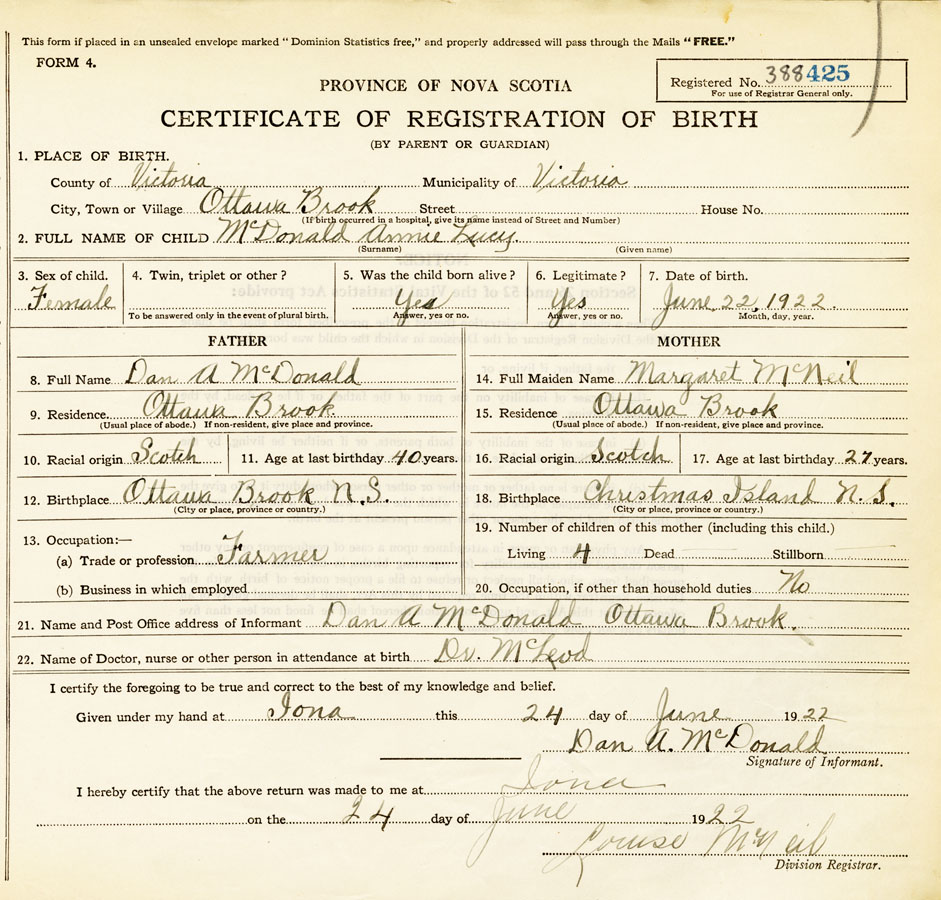 This form if placed in an unsealed envelope marked “Dominion Statistics free,” and properly addressed will pass through the Mails “FREE.”
FORM 4.
Registered No. 388425
For use of Registrar General only.
PROVINCE OF NOVA SCOTIA
CERTIFICATE OF REGISTRATION OF BIRTH
(BY PARENT OR GUARDIAN)
1. PLACE OF BIRTH.
County of Victoria Municipality of Victoria
City, Town or Village Ottawa Brook Street House No.
(If birth occurred in a hospital, give its name instead of Street and Number)
2. FULL NAME OF CHILD McDonald Annie Lucy
(Surname) (Given name)
3. Sex of child. 4. Twin, triplet or other? 5. Was the child born alive? 6. Legitimate? 7. Date of birth.
Female Yes Yes June 22, 1922.
To be answered only in the event of plural birth. Answer, yes or no. Answer, yes or no. Month, day, year.
FATHER
8. Full Name Dan A McDonald
9. Residence Ottawa Brook
(Usual place of abode.) If non-resident, give place and province.
10. Racial origin Scotch 11. Age at last birthday 40 years.
12. Birthplace Ottawa Brook N.S.
(City or place, province or country.)
13. Occupation:—
(a) Trade or profession Farmer
(b) Business in which employed
MOTHER
14. Full Maiden Name Margaret McNeil
15. Residence Ottawa Brook
(Usual place of abode.) If non-resident, give place and province.
16. Racial origin Scotch 17. Age at last birthday 27 years.
18. Birthplace Christmas Island N.S.
(City or place, province or country.)
19. Number of children of this mother (including this child.)
Living 4 Dead Stillborn
20. Occupation, if other than household duties No
21. Name and Post Office address of Informant Dan A McDonald Ottawa Brook.
22. Name of Doctor, nurse or other person in attendance at birth Dr. McLeod
I certify the foregoing to be true and correct to the best of my knowledge and belief.
Given under my hand at Iona this 24 day of June 1922
Dan A. McDonald
Signature of Informant.
I hereby certify that the above return was made to me at Iona
on the 24 day of June 1922
Louise McNeil
Division Registrar.